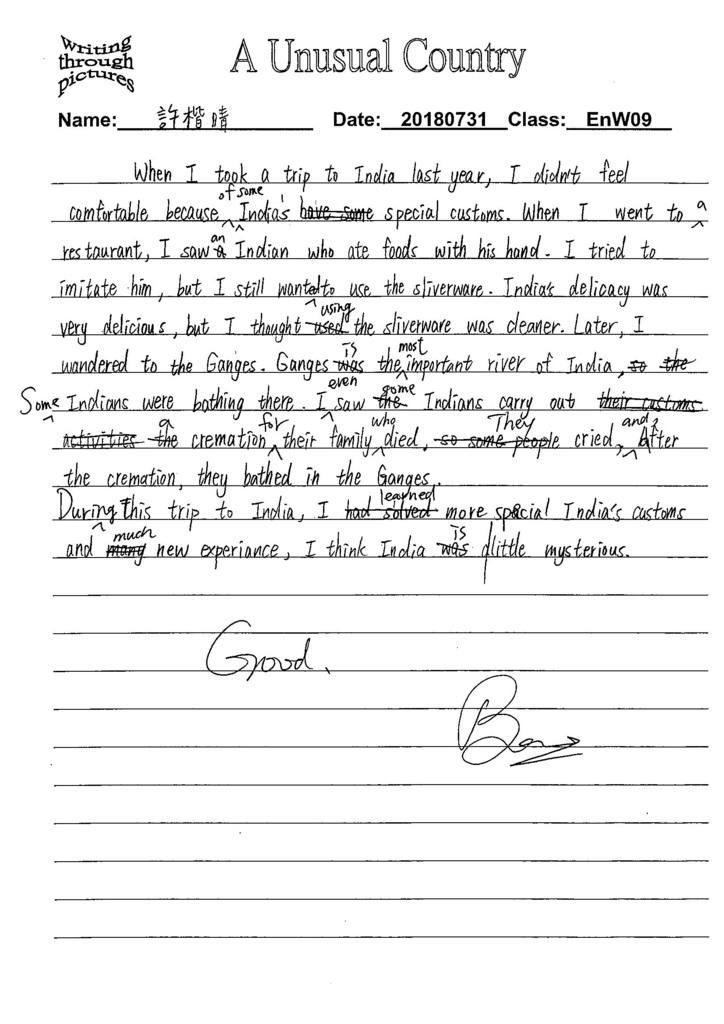 Writing
through
pictures
A Unusual Country
Name: 許楷晴 Date: 20180731 Class: EnW09
When I took a trip to India last year, I didn't feel
of some
comfortable because India's have some special customs. When I went to a
restaurant, I saw an Indian who ate foods with his hand. I tried to
imitate him, but I still wanted to use the sliverware. India's delicacy was
using
very delicious, but I thought used the sliverware was cleaner. Later, I
is most
wandered to the Ganges. Ganges was the important river of India, so the
even some
Some Indians were bathing there. I saw the Indians carry out their customs
a for who They and
activities the cremation their family died, so some people cried, After
the cremation, they bathed in the Ganges.
learned
During This trip to India, I had solved more special India's customs
much is
and many new experiance, I think India was a little mysterious.
Good.